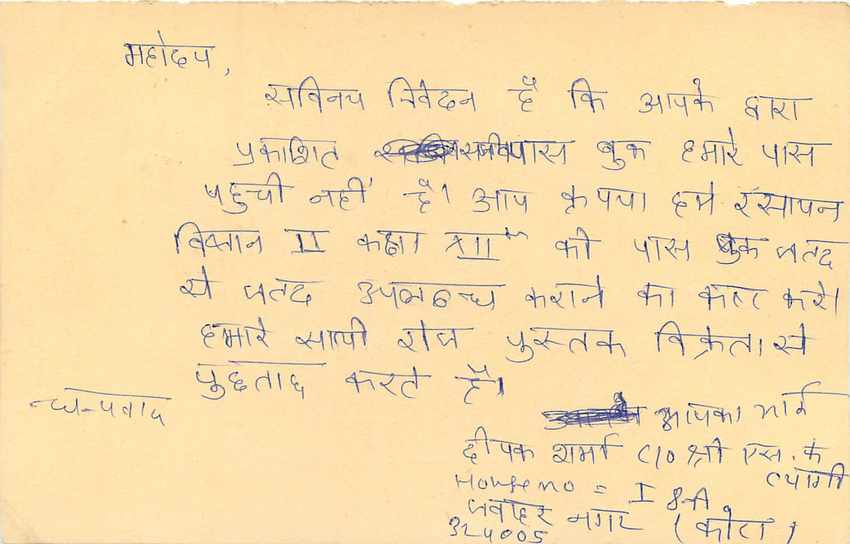 महोदय,
सविनय निवेदन है कि आपके द्वारा
प्रकाशित संजीव पास बुक हमारे पास
पहुची नहीं है। आप कृपया हमे रसायन
विज्ञान II कक्षा XII की पास बुक जल्द
से जल्द उपलब्ध कराने का कष्ट करे।
हमारे साथी रोज पुस्तक विक्रेता से
पुछताछ करते है।
धन्यवाद
आपका भाई
दीपक शर्मा C/O श्री एस. के
त्यागी
House no = I
जवाहर नगर (कोटा)
324005